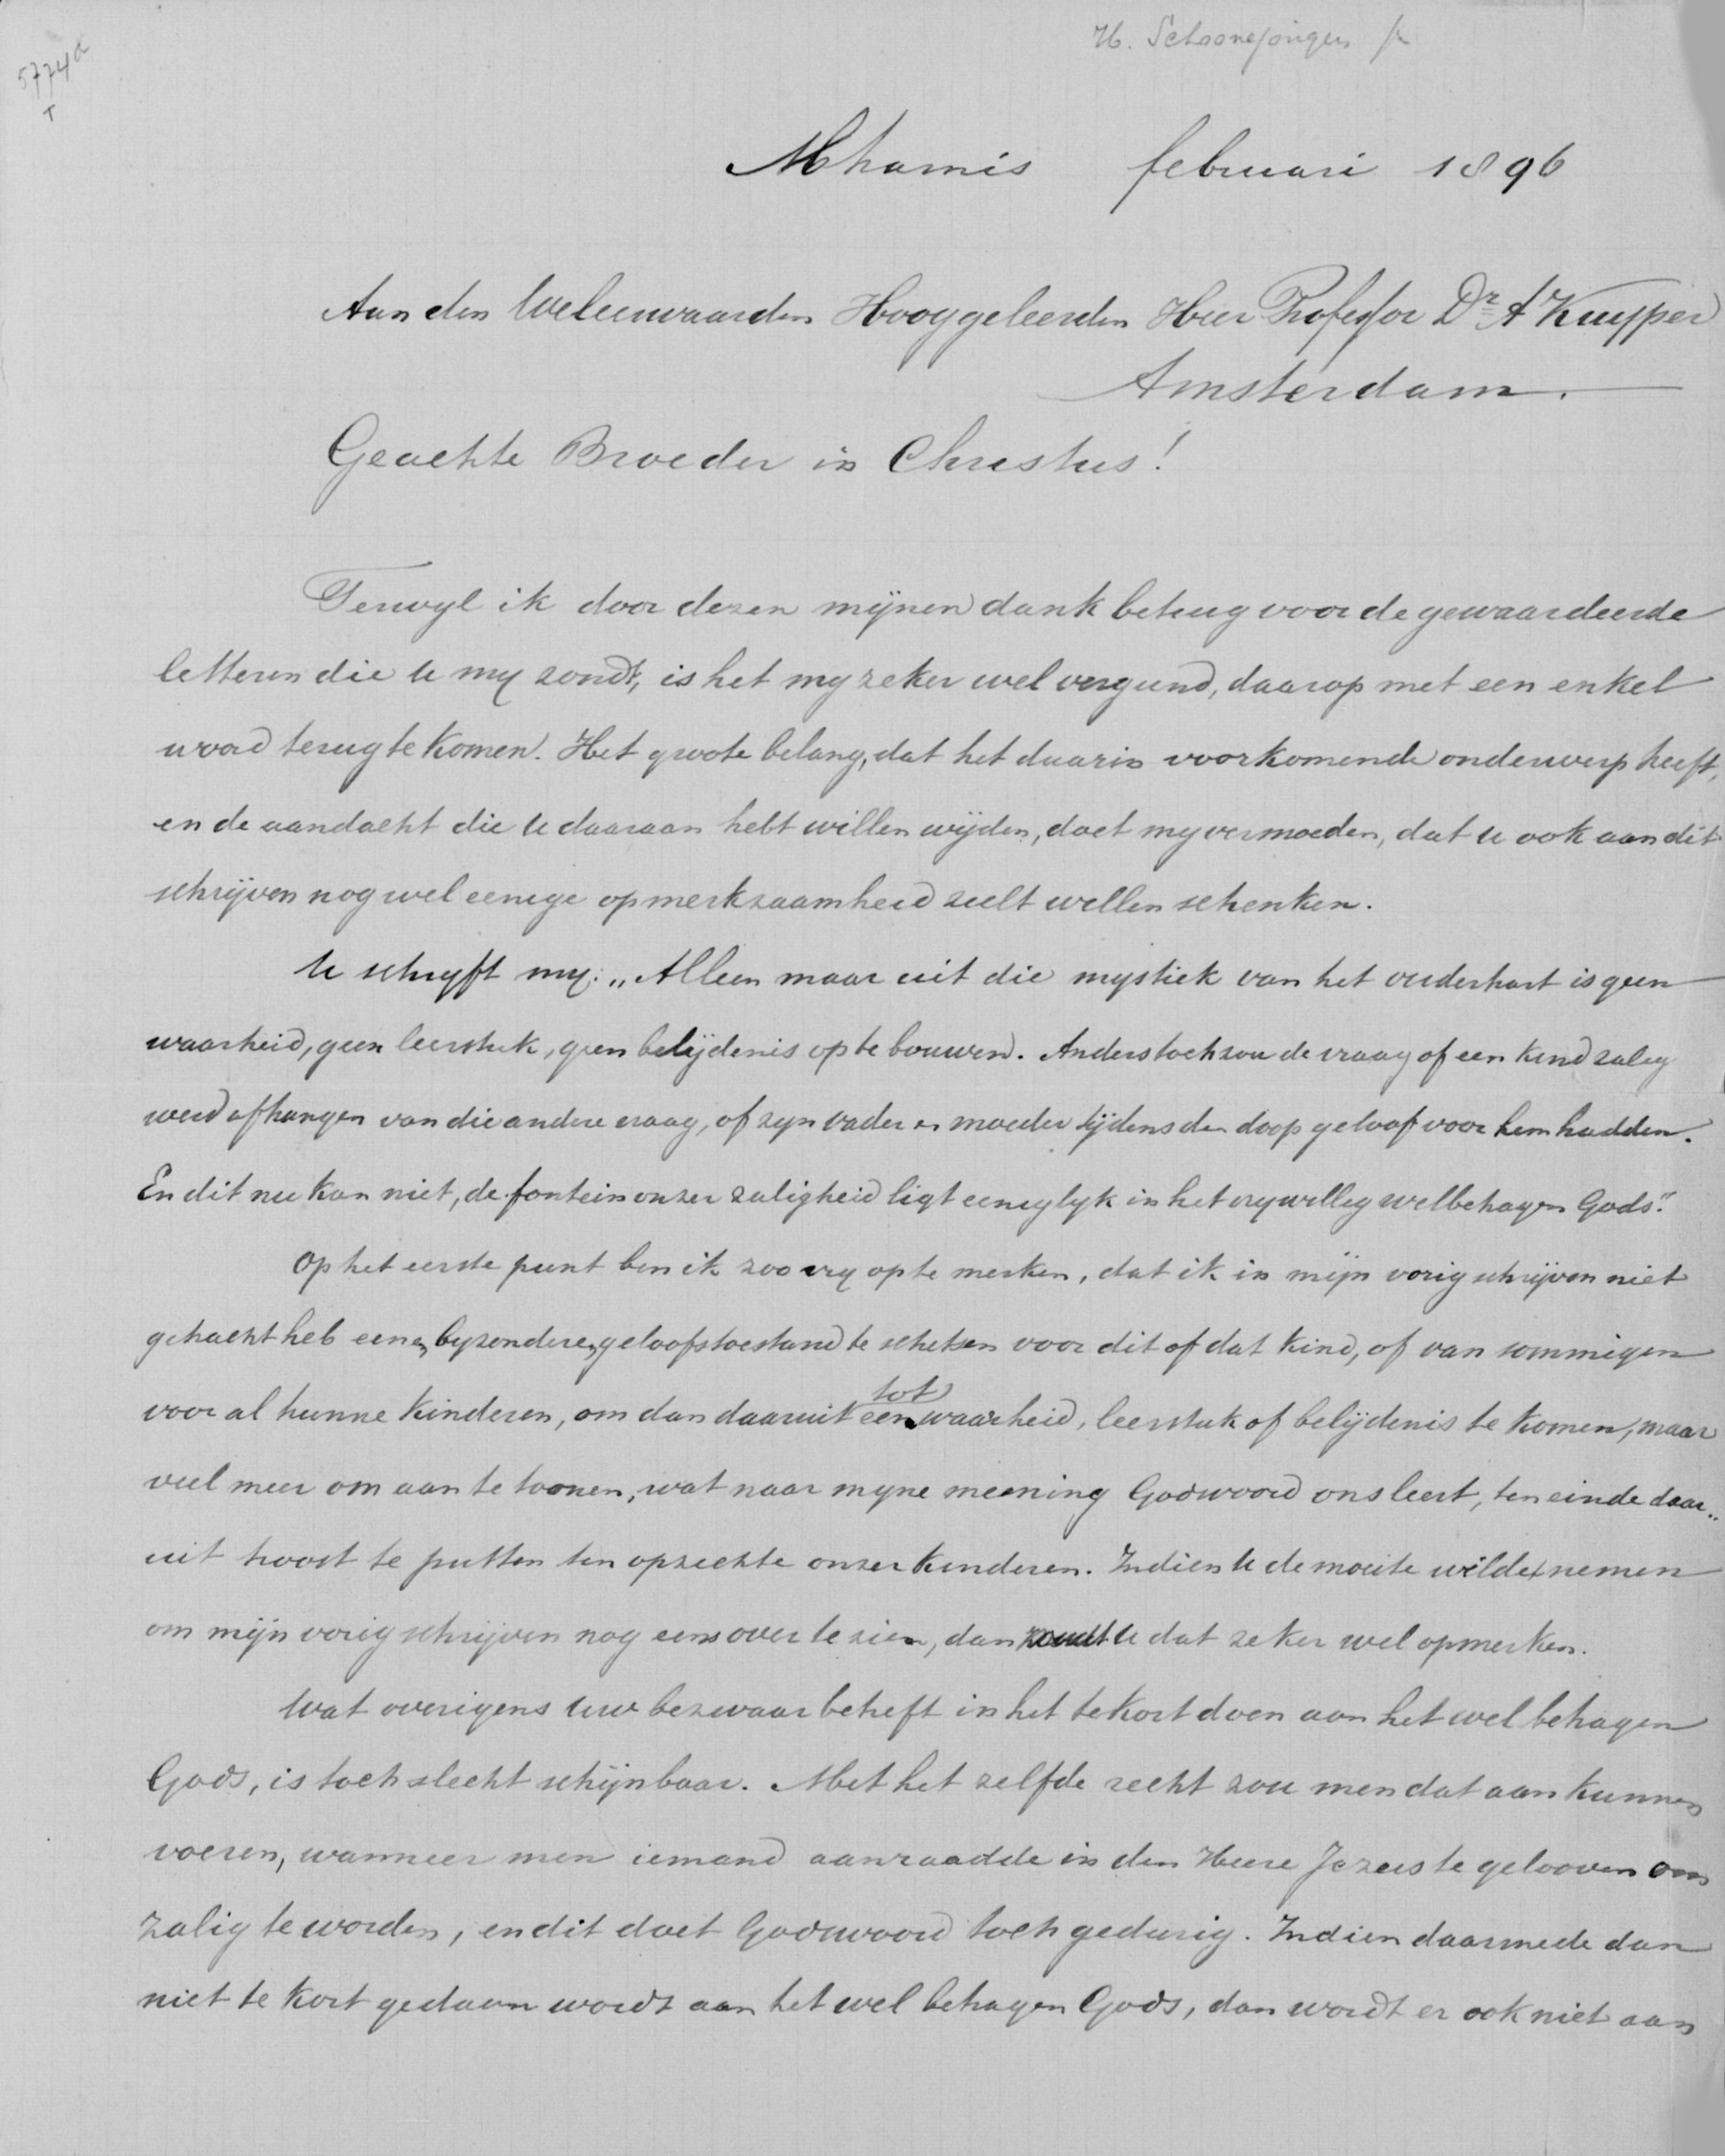 H. Schoonejongen Jr
5774a
T
Mharnis februari 1896
Aan den Weleerwaarden Hooggeleerden Heer Professor Dr. A Kuyper
Amsterdam.
Geachte Broeder in Christus!
Terwyl ik door dezen mijnen dank betuig voor de gewaardeerde
letteren die U my zondt, is het my zeker wel vergund, daarop met een enkel
woord terug te komen. Het groote belang, dat het daarin voorkomende onderwerp heeft,
en de aandacht die U daaraan hebt willen wijden, doet my vermoeden, dat U ook aan dit
schrijven nog wel eenige opmerkzaamheid zult willen schenken.
U schryft my: „Alleen maar uit die mystiek van het ouderhart is geen
waarheid, geen leerstuk, geen belijdenis op te bouwen. Anders toch zou de vraag of een kind zalig
werd afhangen van die andere vraag, of zyn vader en moeder tijdens den doop geloof voor hem hadden.
En dit nu kan niet, de fontein onzer zaligheid ligt eeniglyk in het vrywillig welbehagen Gods."
Op het eerste punt ben ik zoo vry op te merken, dat ik in mijn vorig schrijven niet
getracht heb eenen byzonderen geloofstoestand te schetsen voor dit of dat kind, of van sommigen
voor al hunne kinderen, om dan daaruit tot een waarheid, leerstuk of belijdenis te komen, maar
veel meer om aan te toonen, wat naar myne meening Godswoord ons leert, ten einde daar„
uit troost te putten ten opzichte onzer kinderen. Indien U de moeite wilde nemen
om mijn vorig schrijven nog eens over te zien, dan zoudt U dat zeker wel opmerken.
Wat overigens Uw bezwaar betreft in het tekort doen aan het wel behagen
Gods, is toch slecht schijnbaar. Met het zelfde recht zou men dat aan kunnen
voeren, wanneer men iemand aanraadde in den Heere Jezus te gelooven om
zalig te worden, en dit doet Godswoord toch gedurig. Indien daarmede dan
niet te kort gedaan wordt aan het wel behagen Gods, dan wordt er ook niet aan